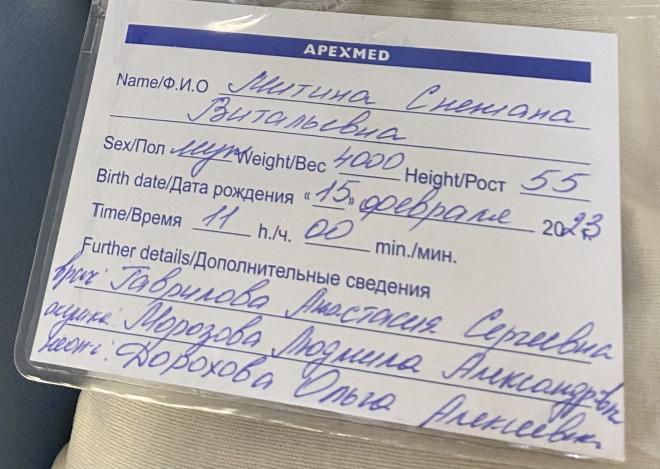 APEXMED
Name/Ф.И.О Митина Снежана
Витальевна
Sex/Пол муж Weight/Вес 4000 Height/Рост 55
Birth date/Дата рождения «15» февраля 2023
Time/Время 11 h./ч. 00 min./мин.
Further details/Дополнительные сведения
врач: Гаврилова Анастасия Сергеевна
Морозова Людмила Александровн
Дорохова Ольга Алексеевн